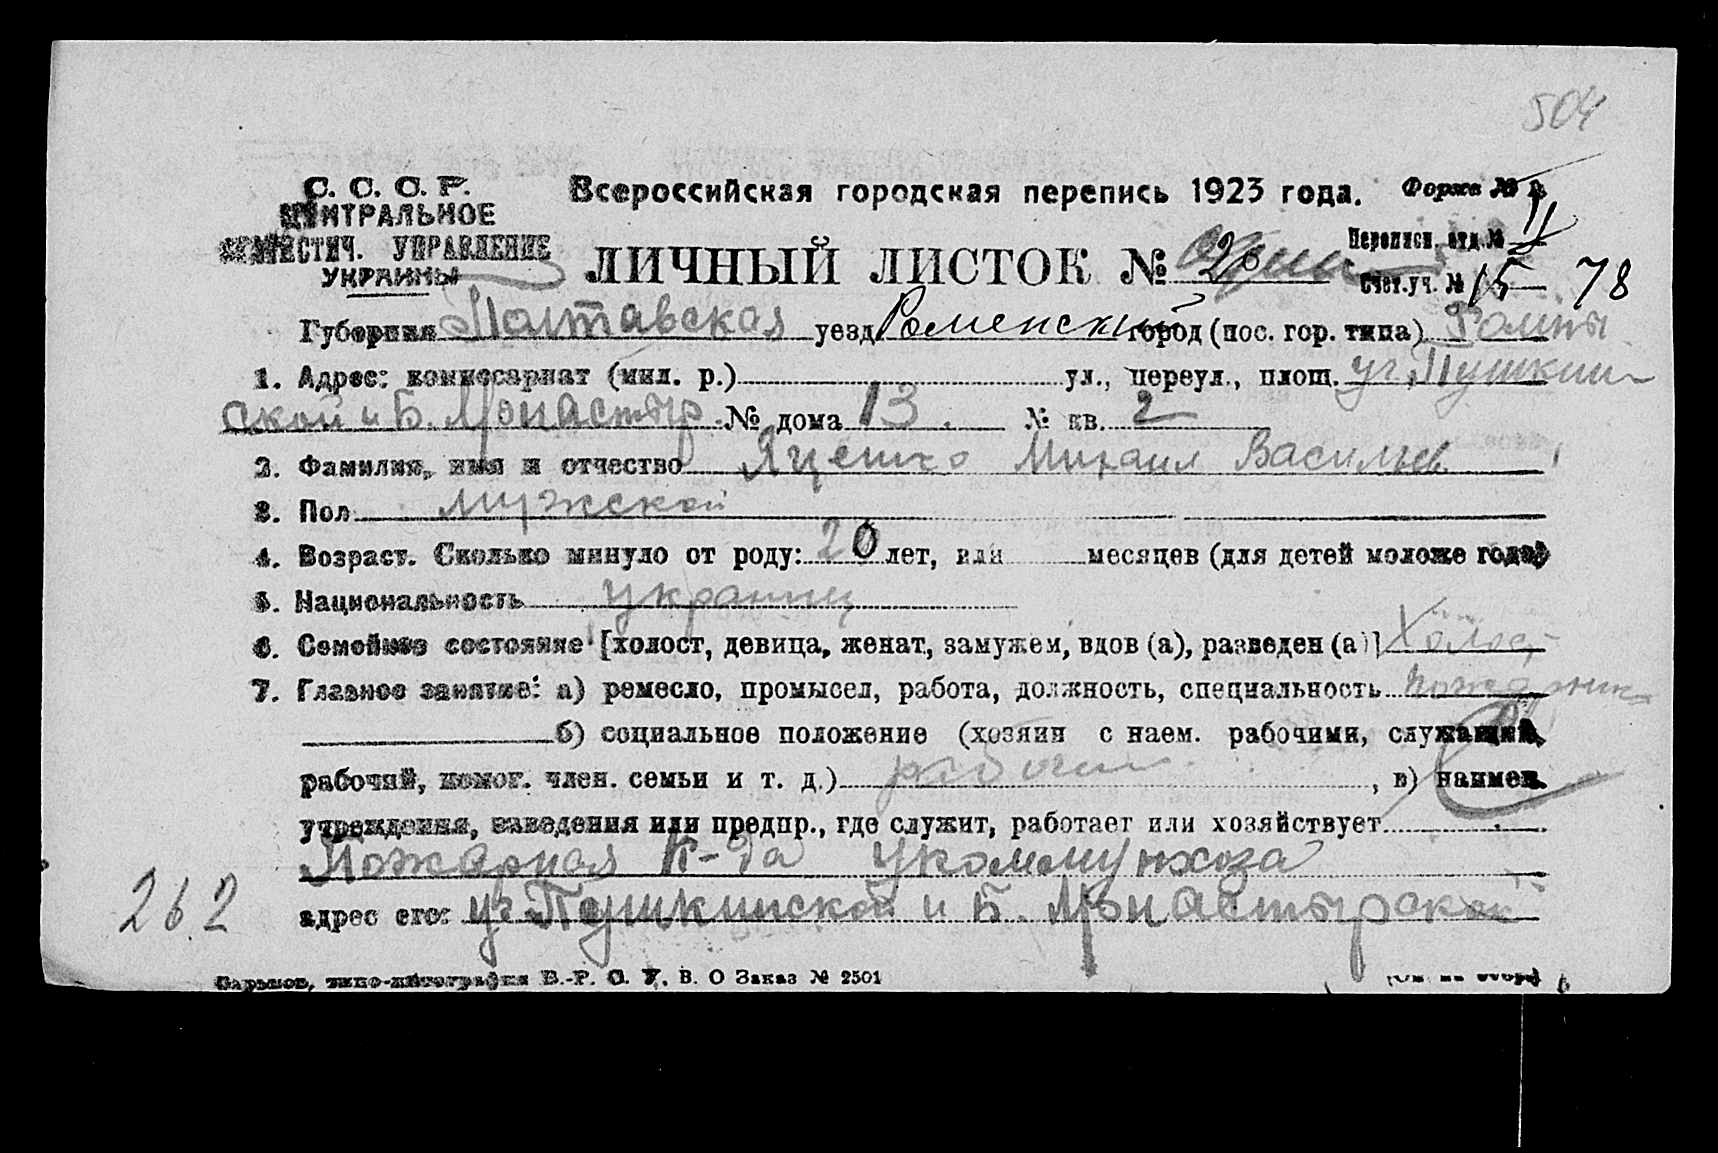 504
С. С. С. Р. Всероссийская городская перепись 1923 года. Форма №
ЦЕНТРАЛЬНОЕ
СТАТИСТИЧ. УПРАВЛЕНИЕ
УКРАИНЫ
ЛИЧНЫЙ ЛИСТОК № 20 Переписн. отд. № 11
Счет. уч. № 15 78
Губерния Полтавская уезд Роменский город (пос. гор. типа) Ромны
1. Адрес: комиссариат (мил. р.) ул., переул., площ. уг. Пушкин-
ской и Б. Монастыр. № дома 13. № кв. 2
2. Фамилия, имя и отчество Яценко Михаил Васильев.
3. Пол мужской
4. Возраст. Сколько минуло от роду: 20 лет, или месяцев (для детей моложе года)
5. Национальность украинец
6. Семейное состояние [холост, девица, женат, замужем, вдов (а), разведен (а)] Холост
7. Главное занятие: а) ремесло, промысел, работа, должность, специальность пожарник
б) социальное положение (хозяин с наем. рабочими, служащий,
рабочий, помог. член. семьи и т. д.) рабочий, в) наимен.
учреждения, заведения или предпр., где служит, работает или хозяйствует
Пожарная к-да укоммунхоза
262
адрес его: уг. Пушкинской и Б. Монастырской
Харьков, типо-литография В.-Р. С. У. В. О Заказ № 2501